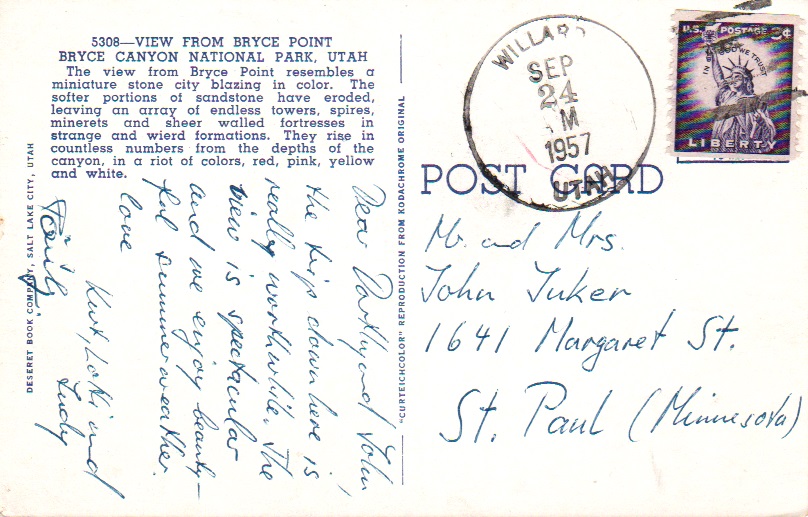 5308—VIEW FROM BRYCE POINT
BRYCE CANYON NATIONAL PARK, UTAH
The view from Bryce Point resembles a
miniature stone city blazing in color. The
softer portions of sandstone have eroded,
leaving an array of endless towers, spires,
minerets and sheer walled fortresses in
strange and wierd formations. They rise in
countless numbers from the depths of the
canyon, in a riot of colors, red, pink, yellow
and white.
DESERET BOOK COMPANY, SALT LAKE CITY, UTAH
Dear Dorothy and John,
the trip down here is
really worthwhile. The
view is spectacular
and we enjoy beauty-
ful summerweather.
love
Kurt, and
"CURTEICHCOLOR" REPRODUCTION FROM KODACHROME ORIGINAL
WILLARD
SEP
24
M
1957
UTAH
U.S. POSTAGE 3¢
IN GOD WE TRUST
LIBERTY
POST CARD
Mr. and Mrs.
John Tuker
1641 Margaret St.
St. Paul (Minnesota)